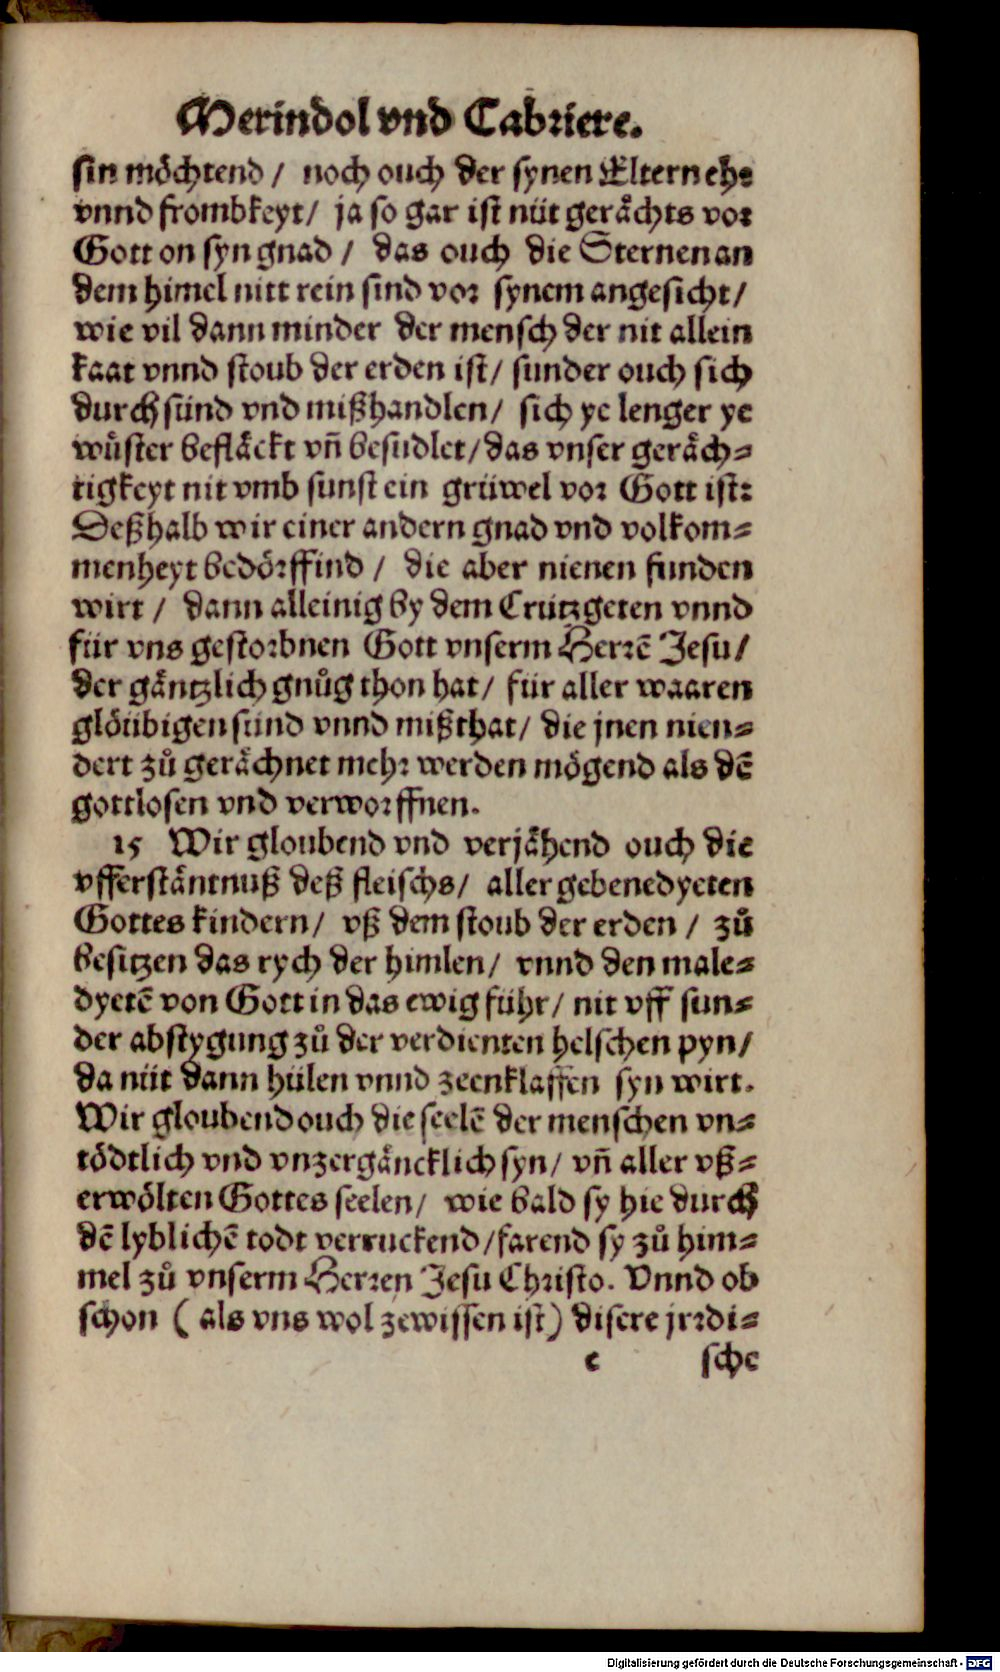 Merindol vnd Cabriere.
sin möchtend / noch ouch der synen Eltern ehr
vnnd frombkeyt / ja so gar ist nüt gerächts vor
Gott on syn gnad / das ouch die Sternen an
dem himel nitt rein sind vor synem angesicht /
wie vil dann minder der mensch der nit allein
kaat vnnd stoub der erden ist / sunder ouch sich
durch sünd vnd mißhandlen / sich ye lenger ye
wuͤster befläckt vñ besudlet / das vnser geräch⸗
tigkeyt nit vmb sunst ein grüwel vor Gott ist:
Deßhalb wir einer andern gnad vnd volkom⸗
menheyt bedörffind / die aber nienen funden
wirt / dann alleinig by dem Crützgeten vnnd
für vns gestorbnen Gott vnserm Herrē Jesu /
der gäntzlich gnůg thon hat / für aller waaren
glöübigen sünd vnnd mißthat / die jnen nien⸗
dert zů gerächnet mehr werden mögend als dē
gottlosen vnd verworffnen.
15 Wir gloubend vnd verjähend ouch die
vfferständtnuß deß fleischs / aller gebenedyeten
Gottes kindern / vß dem stoub der erden / zů
besitzen das rych der himlen / vnnd den male⸗
dyetē von Gott in das ewig führ / nit vff sun⸗
der abstygung zů der verdienten helschen pyn /
da nüt dann hülen vnnd zeenklaffen syn wirt.
Wir gloubend ouch die seelē der menschen vn⸗
tödtlich vnd vnzergäncklich syn / vñ aller vß⸗
erwölten Gottes seelen / wie bald sy hie durch
dē lyblichē todt verruckend / farend sy zů him⸗
mel zů vnserm Herren Jesu Christo. Vnnd ob
schon ( als vns wol zewissen ist ) disere jrrdi⸗
e sche
Digitalisierung gefördert durch die Deutsche Forschungsgemeinschaft - DFG